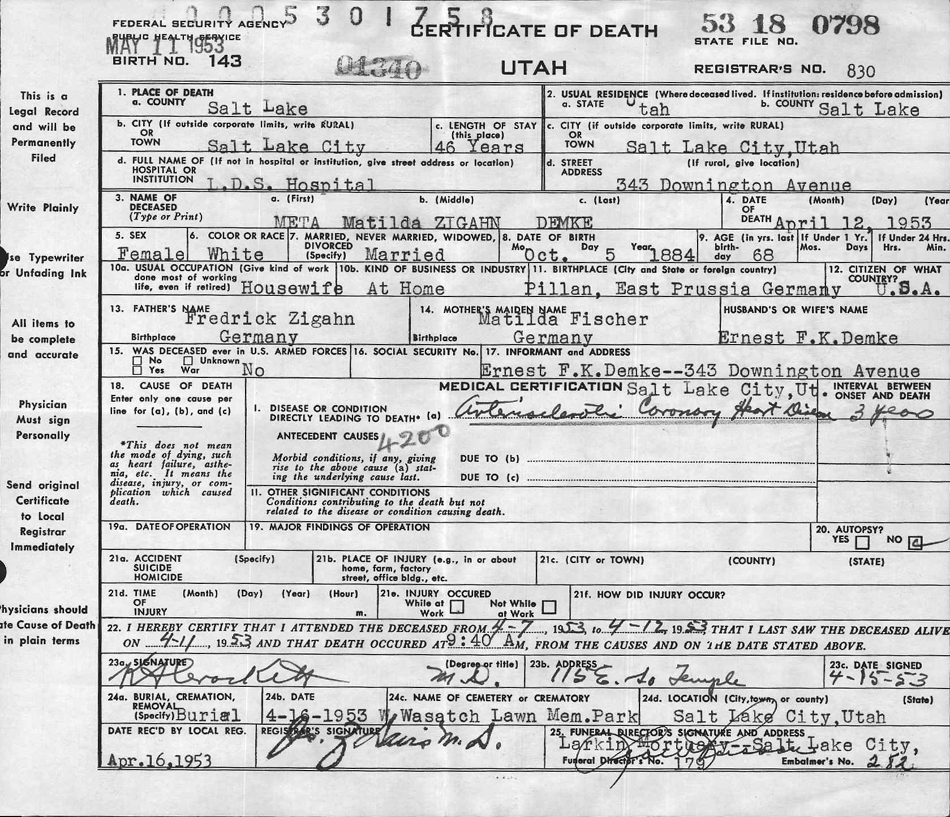 0005301758
FEDERAL SECURITY AGENCY
PUBLIC HEALTH SERVICE
MAY 11 1953
BIRTH NO. 143
01340
CERTIFICATE OF DEATH
UTAH
53 18 0798
STATE FILE NO.
REGISTRAR'S NO. 830
This is a
Legal Record
and will be
Permanently
Filed
Write Plainly
se Typewriter
or Unfading Ink
All items to
be complete
and accurate
Physician
Must sign
Personally
Send original
Certificate
to Local
Registrar
Immediately
Physicians should
ate Cause of Death
in plain terms
1. PLACE OF DEATH
a. COUNTY Salt Lake
2. USUAL RESIDENCE (Where deceased lived. If institution: residence before admission)
a. STATE Utah b. COUNTY Salt Lake
b. CITY (If outside corporate limits, write RURAL)
OR
TOWN Salt Lake City
c. LENGTH OF STAY
(this place)
46 Years
c. CITY (if outside corporate limits, write RURAL)
OR
TOWN Salt Lake City,Utah
d. FULL NAME OF (If not in hospital or institution, give street address or location)
HOSPITAL OR
INSTITUTION L.D.S. Hospital
d. STREET (If rural, give location)
ADDRESS 343 Downington Avenue
3. NAME OF DECEASED
(Type or Print)
a. (First) b. (Middle) c. (Last)
META Matilda ZIGAHN DEMKE
4. DATE OF DEATH (Month) (Day) (Year
April 12, 1953
5. SEX
Female
6. COLOR OR RACE
White
7. MARRIED, NEVER MARRIED, WIDOWED,
DIVORCED
(Specify) Married
8. DATE OF BIRTH
Mo. Day Year
Oct. 5 1884
9. AGE (in yrs. last
birth-
day 68
If Under 1 Yr.
Mos. Days
If Under 24 Hrs.
Hrs. Min.
10a. USUAL OCCUPATION (Give kind of work
done most of working
life, even if retired) Housewife
10b. KIND OF BUSINESS OR INDUSTRY
At Home
11. BIRTHPLACE (City and State or foreign country)
Pillan, East Prussia Germany
12. CITIZEN OF WHAT
COUNTRY?
U.S.A.
13. FATHER'S NAME
Fredrick Zigahn
Birthplace Germany
14. MOTHER'S MAIDEN NAME
Matilda Fischer
Birthplace Germany
HUSBAND'S OR WIFE'S NAME
Ernest F.K.Demke
15. WAS DECEASED ever in U.S. ARMED FORCES
No Unknown
Yes War No
16. SOCIAL SECURITY No.
17. INFORMANT and ADDRESS
Ernest F.K.Demke--343 Downington Avenue
Salt Lake City,Ut.
18. CAUSE OF DEATH
Enter only one cause per
line for (a), (b), and (c)
*This does not mean
the mode of dying, such
as heart failure, asthe-
nia, etc. It means the
disease, injury, or com-
plication which caused
death.
MEDICAL CERTIFICATION
INTERVAL BETWEEN
ONSET AND DEATH
I. DISEASE OR CONDITION
DIRECTLY LEADING TO DEATH* (a) Arteriosclerotic Coronary Heart Disease 3 years
ANTECEDENT CAUSES 4200
Morbid conditions, if any, giving
rise to the above cause (a) stat-
ing the underlying cause last.
DUE TO (b)
DUE TO (c)
11. OTHER SIGNIFICANT CONDITIONS
Conditions contributing to the death but not
related to the disease or condition causing death.
19a. DATE OF OPERATION
19. MAJOR FINDINGS OF OPERATION
20. AUTOPSY?
YES NO
21a. ACCIDENT (Specify)
SUICIDE
HOMICIDE
21b. PLACE OF INJURY (e.g., in or about
home, farm, factory
street, office bldg., etc.
21c. (CITY or TOWN) (COUNTY) (STATE)
21d. TIME (Month) (Day) (Year) (Hour)
OF
INJURY m.
21e. INJURY OCCURED
While at Work Not While at Work
21f. HOW DID INJURY OCCUR?
22. I HEREBY CERTIFY THAT I ATTENDED THE DECEASED FROM 4-7, 1953, to 4-12, 1953, THAT I LAST SAW THE DECEASED ALIVE
ON 4-11, 1953 AND THAT DEATH OCCURED AT 9:40 AM, FROM THE CAUSES AND ON THE DATE STATED ABOVE.
23a. SIGNATURE (Degree or title)
Crockett M.D.
23b. ADDRESS
115 E. So Temple
23c. DATE SIGNED
4-15-53
24a. BURIAL, CREMATION,
REMOVAL
(Specify) Burial
24b. DATE
4-16-1953
24c. NAME OF CEMETERY or CREMATORY
W Wasatch Lawn Mem.Park
24d. LOCATION (City,town, or county) (State)
Salt Lake City,Utah
DATE REC'D BY LOCAL REG.
Apr.16,1953
REGISTRAR'S SIGNATURE
M.D.
25. FUNERAL DIRECTOR'S SIGNATURE AND ADDRESS
Larkin Mortuary--Salt Lake City,
Funeral Director's No. 179 Embalmer's No. 282